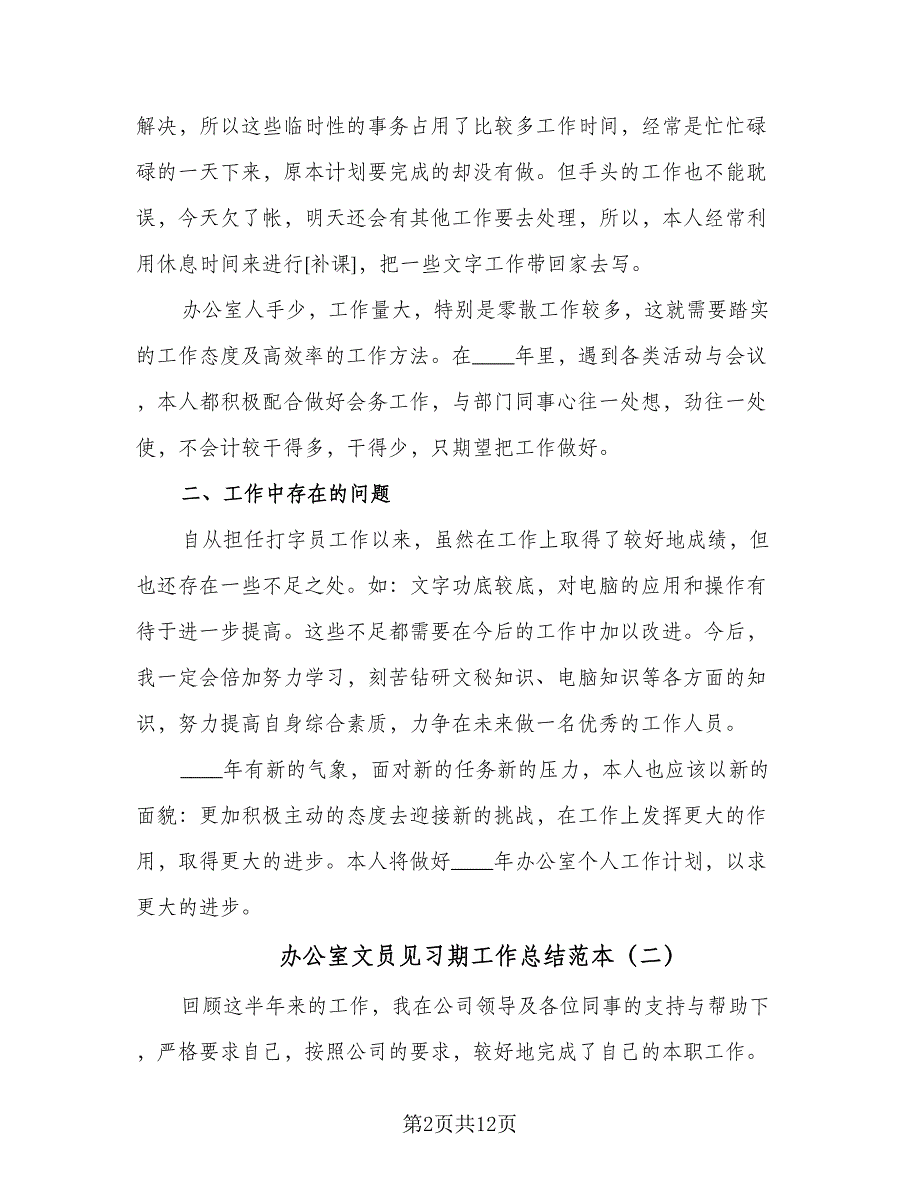 解决，所以这些临时性的事务占用了比较多工作时间，经常是忙忙碌
碌的一天下来，原本计划要完成的却没有做。但手头的工作也不能耽
误，今天欠了帐，明天还会有其他工作要去处理，所以，本人经常利
用休息时间来进行[补课]，把一些文字工作带回家去写。
办公室人手少，工作量大，特别是零散工作较多，这就需要踏实
的工作态度及高效率的工作方法。在____年里，遇到各类活动与会议
，本人都积极配合做好会务工作，与部门同事心往一处想，劲往一处
使，不会计较干得多，干得少，只期望把工作做好。
二、工作中存在的问题
自从担任打字员工作以来，虽然在工作上取得了较好地成绩，但
也还存在一些不足之处。如：文字功底较底，对电脑的应用和操作有
待于进一步提高。这些不足都需要在今后的工作中加以改进。今后，
我一定会倍加努力学习，刻苦钻研文秘知识、电脑知识等各方面的知
识，努力提高自身综合素质，力争在未来做一名优秀的工作人员。
____年有新的气象，面对新的任务新的压力，本人也应该以新的
面貌：更加积极主动的态度去迎接新的挑战，在工作上发挥更大的作
用，取得更大的进步。本人将做好____年办公室个人工作计划，以求
更大的进步。
办公室文员见习期工作总结范本（二）
回顾这半年来的工作，我在公司领导及各位同事的支持与帮助下
，严格要求自己，按照公司的要求，较好地完成了自己的本职工作。
第2页共12页